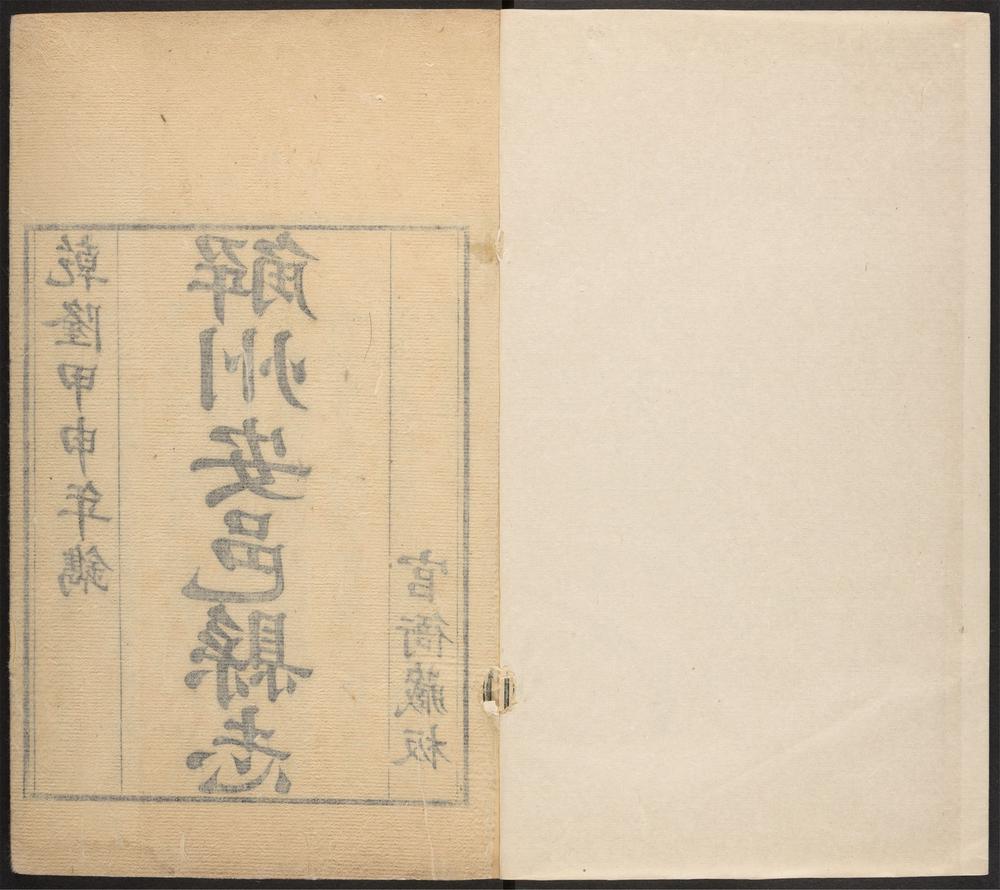 乾隆甲申年鐫
解州安邑縣志
本衙藏板